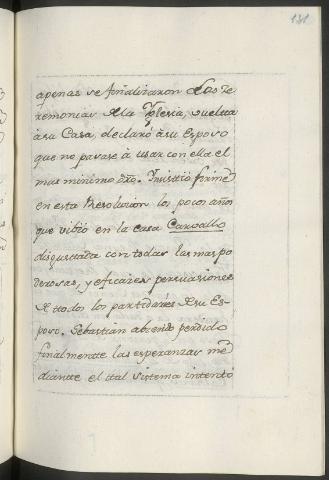 131
apenas se finalizaron las Ze
remonias de la Yglesia, vuelta
à su Casa, declaró à su Esposo
que no pasase à usar con ella el
mas minimo dro. Insistió firme
en esta Resolucion los pocos años
que vibió en la casa Carvallo
disgustada con todas las mas po
derosas, y eficazes persuasiones
de todos los partidares de su Es-
poso. Sebastian abiendo perdido
finalmente las esperanzas me
diante el tal sistema intentó